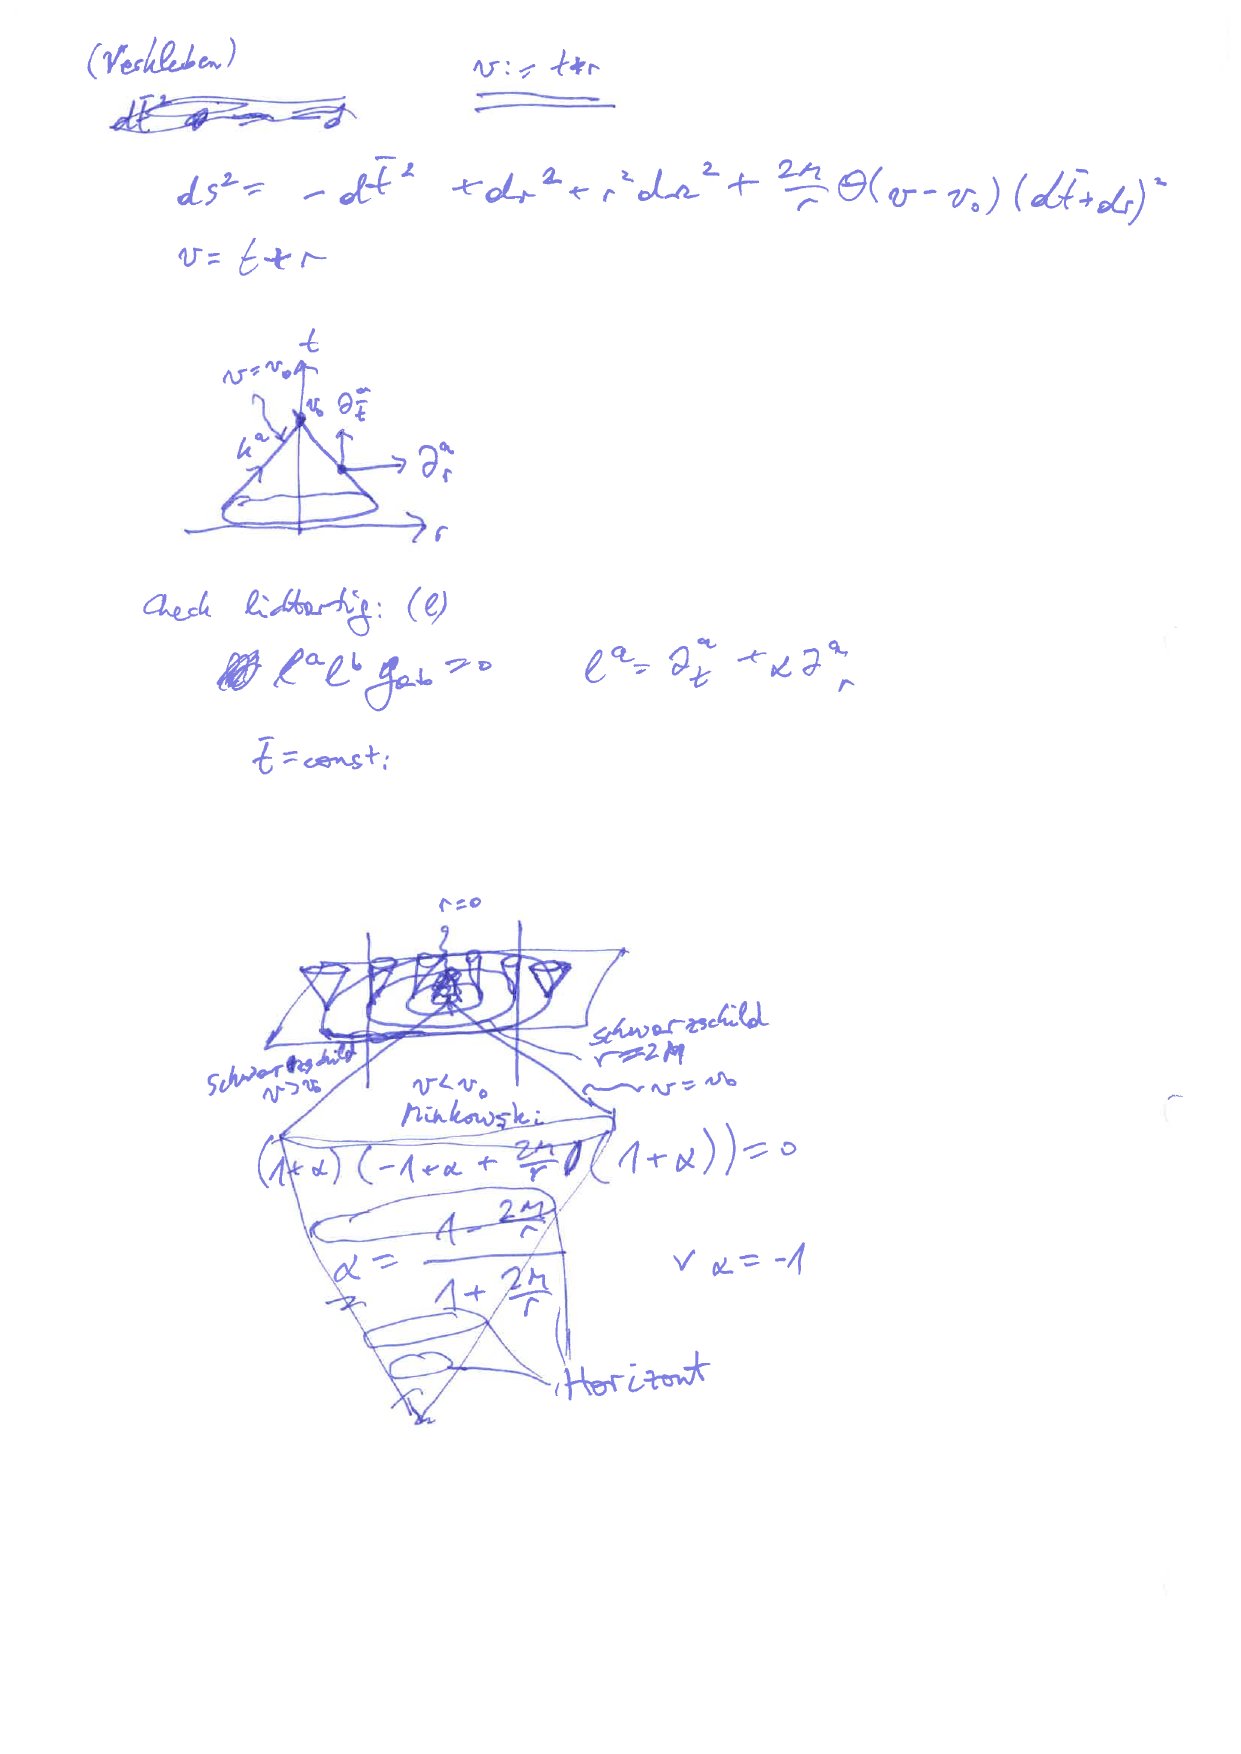 (Verkleben)
v := t+r
ds² = - dt̄² + dr² + r²dΩ² + 2M/r Θ(v-v₀)(dt̄+dr)²
v = t+r
t
v=v₀
v₀ ∂ᵃ_t̄
kᵃ
∂ᵃ_r
r
Check lichtartig: (l)
lᵃlᵇg_ab = 0 lᵃ = ∂ᵃ_t + α∂ᵃ_r
t̄ = const:
r=0
Schwarzschild
r=2M
Schwarzschild
v>v₀
v<v₀
v=v₀
Minkowski
(1+α)(-1+α + 2M/r (1+α)) = 0
α = (1 - 2M/r)/(1 + 2M/r) ∨ α = -1
Horizont